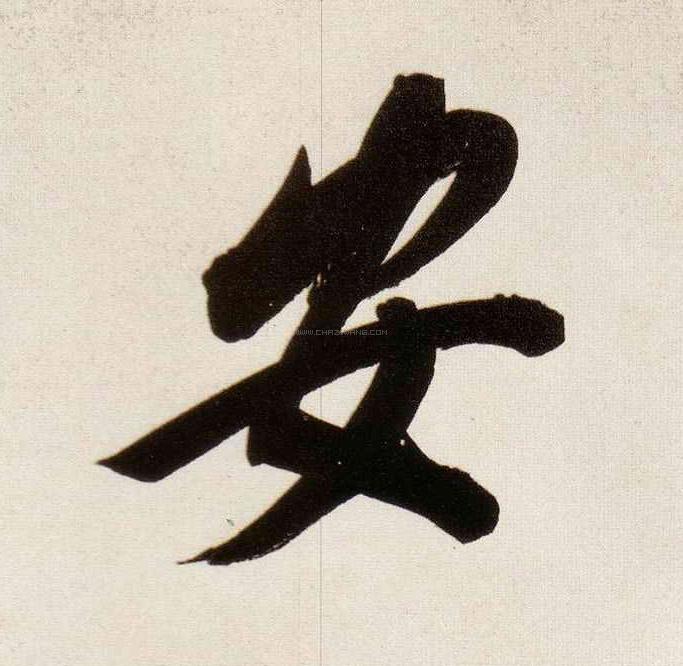 安
WWW.CHAZIWANG.COM